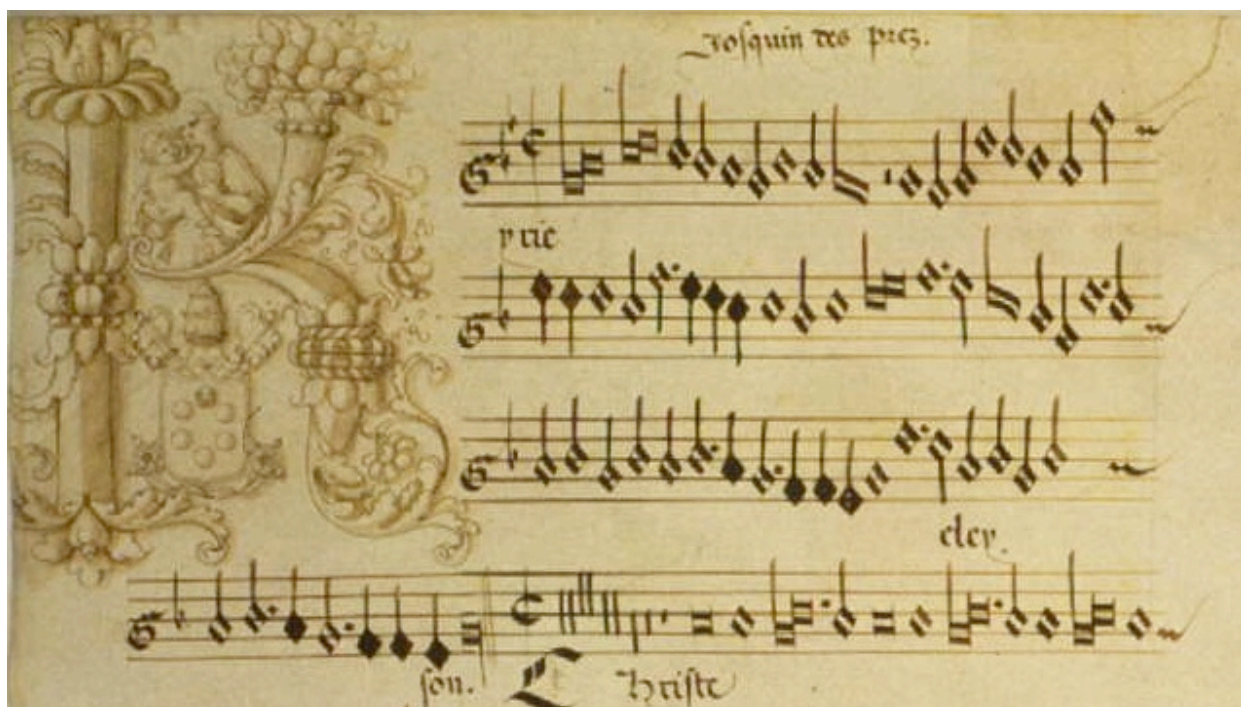 Josquin des prez.
Kyrie
eley
son. Christe